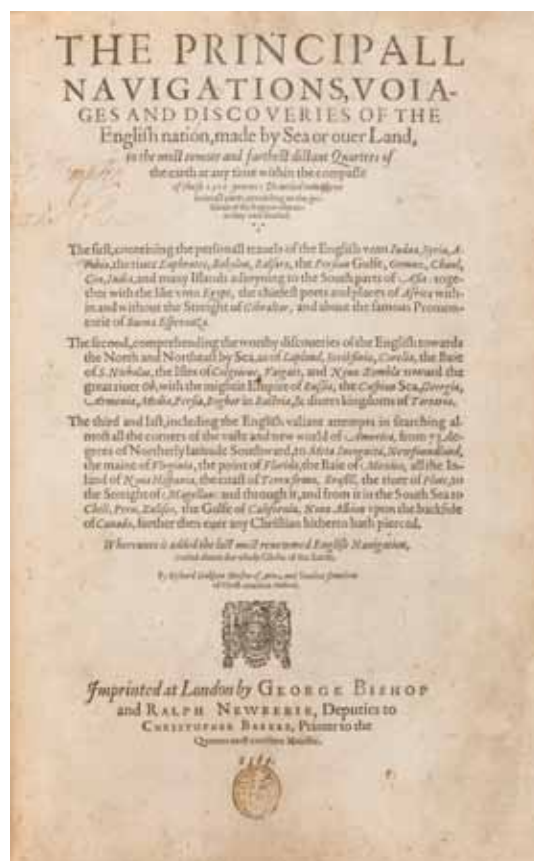 THE PRINCIPALL
NAVIGATIONS, VOIA-
GES AND DISCOVERIES OF THE
Engliſh nation, made by Sea or ouer Land,
to the moſt remote and fartheſt diſtant Quarters of
the earth at any time within the compaſſe
of theſe 1500. yeeres: Deuided into three
The firſt, conteining the perſonall trauels of the Engliſh vnto Iudæa, Syria, A-
rabia, the riuer Euphrates, Babylon, Balſara, the Perſian Gulfe, Ormuz, Chaul,
Goa, India, and many Iſlands adioyning to the South parts of Aſia: toge-
ther with the like vnto Egypt, the chiefeſt ports and places of Africa with-
in and without the Streight of Gibraltar, and about the famous Promon-
torie of Buona Eſperanza.
The ſecond, comprehending the worthy diſcoueries of the Engliſh towards
the North and Northeaſt by Sea, as of Lapland, Scrikfinia, Corelia, the Baie
of S. Nicholas, the Iſles of Colgoieue, Vaigats, and Noua Zembla toward the
great riuer Ob, with the mightie Empire of Ruſſia, the Caſpian Sea, Georgia,
Armenia, Media, Perſia, Boghar in Bactria, & diuers kingdoms of Tartaria.
The third and laſt, including the Engliſh valiant attempts in ſearching al-
moſt all the corners of the vaſte and new world of America, from 73. de-
grees of Northerly latitude Southward, to Meta Incognita, Newfoundland,
the maine of Virginia, the point of Florida, the Baie of Mexico, all the In-
land of Noua Hiſpania, the coaſt of Terra firma, Braſill, the riuer of Plate, to
the Streight of Magellan: and through it, and from it in the South Sea to
Chili, Peru, Xaliſco, the Gulfe of California, Noua Albion vpon the backſide
of Canada, further then euer any Chriſtian hitherto hath pierced.
Whereunto is added the laſt moſt renowmed Engliſh Nauigation,
round about the whole Globe of the Earth.
By Richard Hakluyt Maſter of Artes, and Student ſometime
Imprinted at London by GEORGE BISHOP
and RALPH NEWBERIE, Deputies to
CHRISTOPHER BARKER, Printer to the
Queenes moſt excellent Maieſtie.
1589.